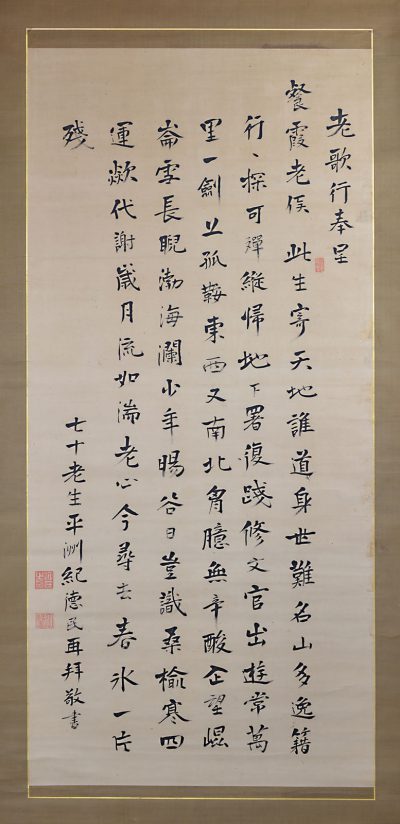 老歌行奉呈
餐霞老侯 此生寄天地誰道身世難名山多逸籍
行〻探可殫縱帰地下署復踐修文官出遊常萬
里一劍孤鞍東西又南北胷臆無辛酸企望崐
崙雪長睨渤海瀾少年暘谷日豈識桑榆寒四
運欻代謝歳月流如湍老心今尋去春氷一片
残
七十老生平洲紀德民再拜敬書